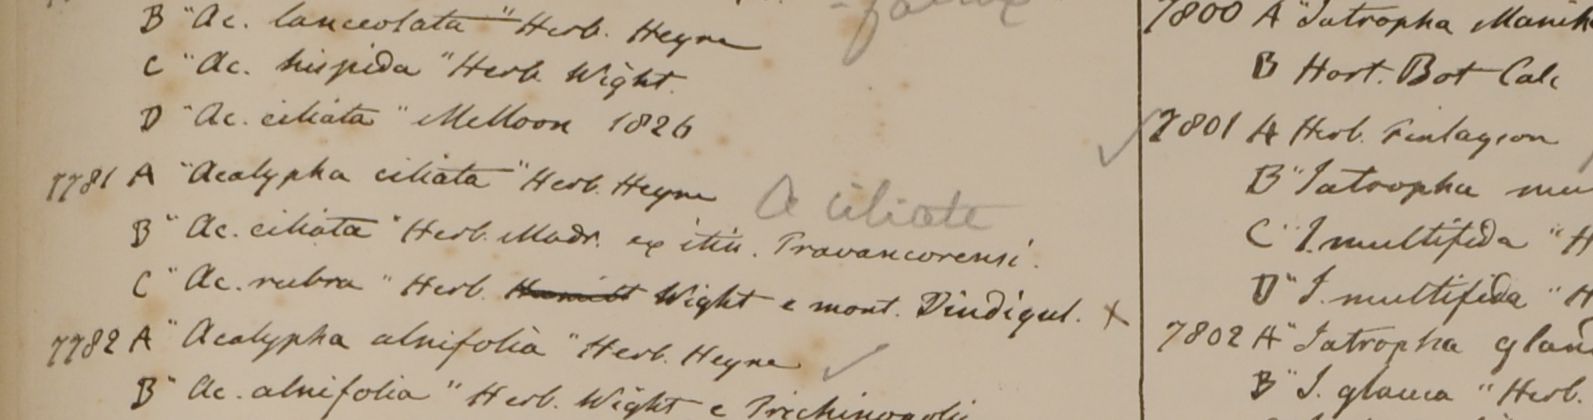 B "Ac. lanceolata" Herb. Heyne
C "Ac. hispida" Herb Wight
D "Ac. ciliata" McMoon 1826
7781 A "Acalypha ciliata" Herb. Heyne
A ciliata
B "Ac. ciliata" Herb. Madr. ex itin. Travancorensi.
C "Ac. rubra" Herb. Wight e mont. Dindigul. x
7782 A "Acalypha alnifolia" Herb. Heyne
B "Ac. alnifolia" Herb. Wight e Trichinopoli
7800 A "Jatropha Manih
B Hort. Bot Calc
7801 A Herb. Finlayson
B "Jatropha mu
C "J. multifida" H
D "J. multifida" H
7802 A "Jatropha glau
B "J. glauca" Herb.